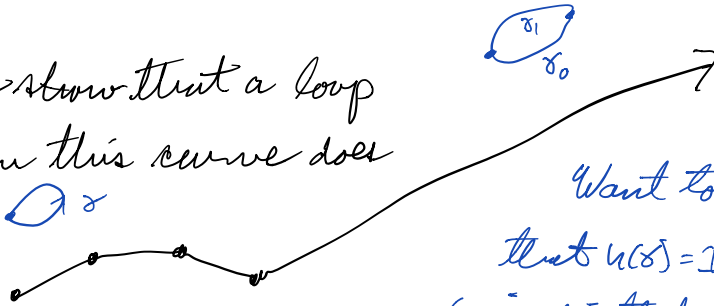 γ₁
γ₀
show that a loop
this curve does
γ
Want to
that h(γ) = 1